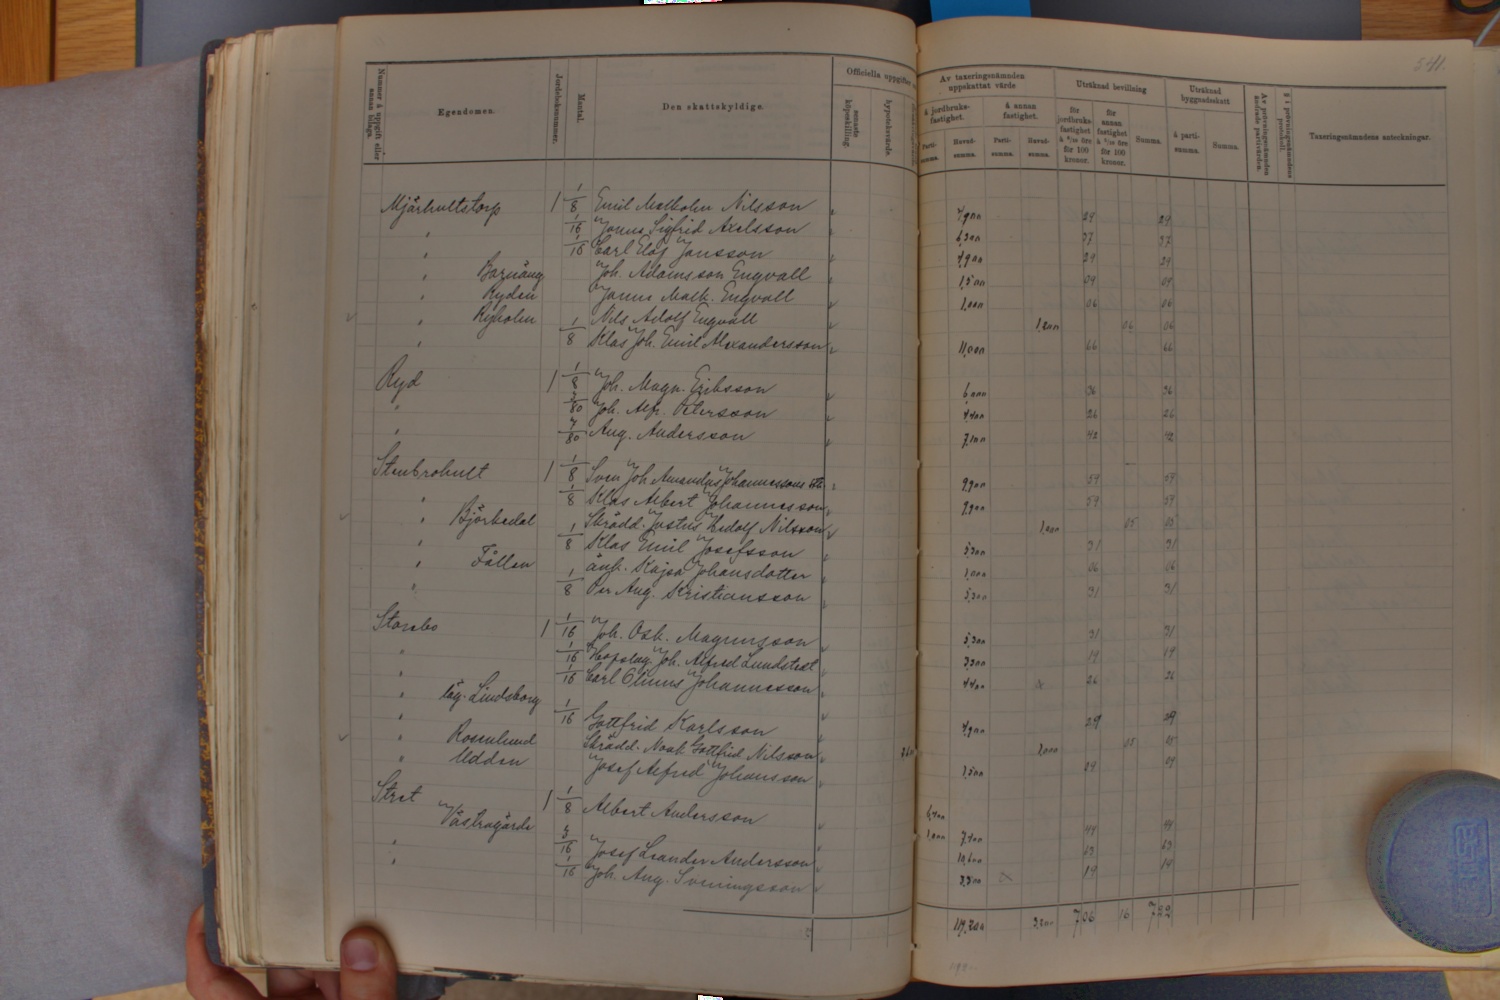 541.
Nummer å uppgift eller annan bilaga.
Egendomen.
Jordeboksnummer.
Mantal.
Den skattskyldige.
Officiella uppgifter
senaste köpeskilling.
hypoteksvärde.
Av taxeringsnämnden uppskattat värde
å jordbruks-fastighet.
å annan fastighet.
Parti-summa.
Huvud-summa.
Parti-summa.
Huvud-summa.
Uträknad bevillning
för jordbruks-fastighet
för 100 kronor.
för annan fastighet
för 100 kronor.
Summa.
Uträknad byggnadsskatt
å parti-summa.
Summa.
Taxeringsnämndens anteckningar.
Mjärhultstorp 1 1/8 Emil Malkolm Nilsson 4,900 29 29
" 1/16 Jonas Sigfrid Axelsson 6,300 37 37
" 1/16 Carl Elof Jonsson 4,900 29 29
" Joh. Adamsson Engvall 1,500 09 09
" Ryden Janne Malk. Engvall 1,000 06 06
" Ryholm Nils Adolf Engvall 1,200 06 06
" 1/8 Klas Joh. Emil Alexandersson 11,000 66 66
Ryd 1 1/8 Joh. Magn. Eriksson 6,000 36 36
" 7/80 Joh. Alfr. Petersson 4,400 26 26
" 7/80 Aug. Andersson 7,100 42 42
Stenbrohult 1 1/8 Sven Joh. Amandus Johannessons 9,900 59 59
" 1/8 Klas Albert Johannesson 9,900 59 59
" Björkedal Skrädd. Justus Hedolf Nilsson 1,000 05 05
" 1/8 Klas Emil Josefsson 5,300 31 31
" Fållen änk. Kajsa Johansdotter 1,000 06 06
" 1/8 Per Aug. Kristiansson 5,300 31 31
Storebo 1 1/16 Joh. Osk. Magnusson 5,300 31 31
" 1/16 Joh. Alfred Lundstedt 3,300 19 19
" 1/16 Carl Olinus Johannesson 4,400 26 26
" läg. Lindsborg
" 1/16 Gottfrid Karlsson 4,900 29 29
" Rosenlund Skrädd. Noak Gottfrid Nilsson 1,000 05 05
" Udden Josef Alfred Johansson 1,500 09 09
Stret 1 1/8 Albert Andersson 6,400
Västragärde 1,000 7,400 44 44
" 3/16 Josef Leander Andersson 10,600 63 63
" 1/16 Joh. Aug. Sveningsson 3,300 19 19
7 06 16 7 22